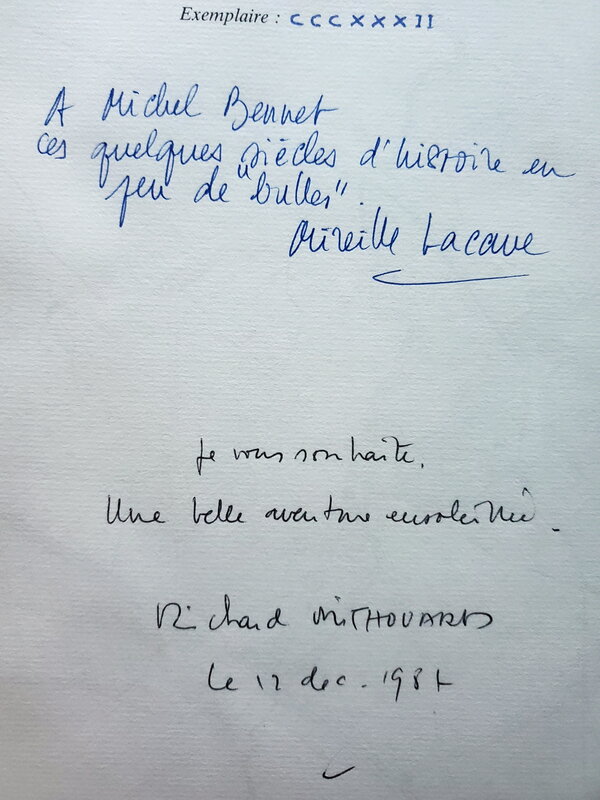 Exemplaire : CCCXXXII
A Michel Bennet
ces quelques siècles d'histoire en
peu de "bulles".
Mireille Lacave
Je vous souhaite,
Une belle aventure ensoleillée.
Richard MITHOUARD
le 12 dec. 198